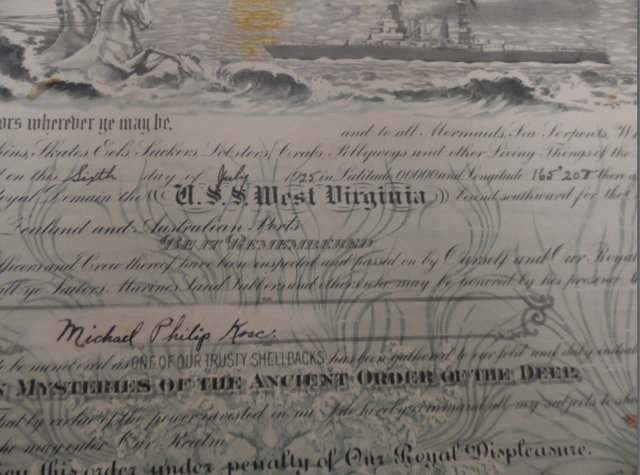 ors wherever ye may be,
and to all Mermaids, Sea Serpents, W
Skates Eels Suckers Lobsters Crabs Pollywogs and other Living Things of the
on this Sixth day of July 1925 in Latitude 00000 and Longitude 165 20
oyal Domain the U.S.S. West Virginia bound southward for the
Zealand and Australian Ports
BE IT REMEMBERED
Officers and Crew thereof have been inspected and passed on by Ourself and Our Royal
all ye Sailors Marines Land Lubbers and others who may be honored by his presence
Michael Philip Kosc.
to be numbered as ONE OF OUR TRUSTY SHELLBACKS has been gathered to our fold and duly
MYSTERIES OF THE ANCIENT ORDER OF THE DEEP.
That by virtue of the power invested in me I do hereby command all my subjects to
he may enter Our Realm.
this order under penalty of Our Royal Displeasure.